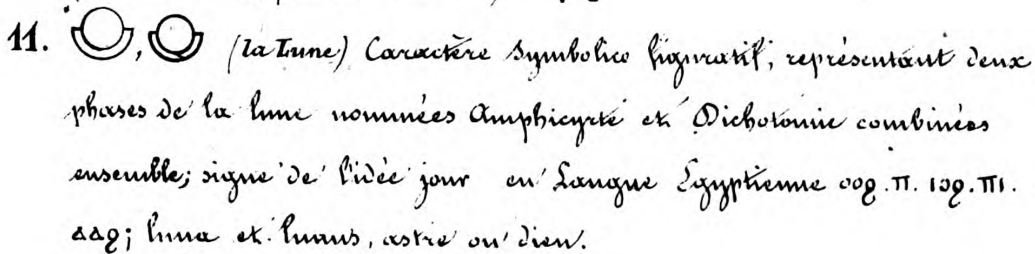 11. , (la Lune) Caractère Symbolico figuratif, représentant deux
phases de la lune nommées Amphicyrte et Dichotomie combinées
ensemble; signe de l'idée jour en Langue Egyptienne ⲟⲟϩ. ⲡ. ⲓⲟϩ. ⲡⲓ.
ⲁⲁϩ; luna et lunus, astre ou dieu.